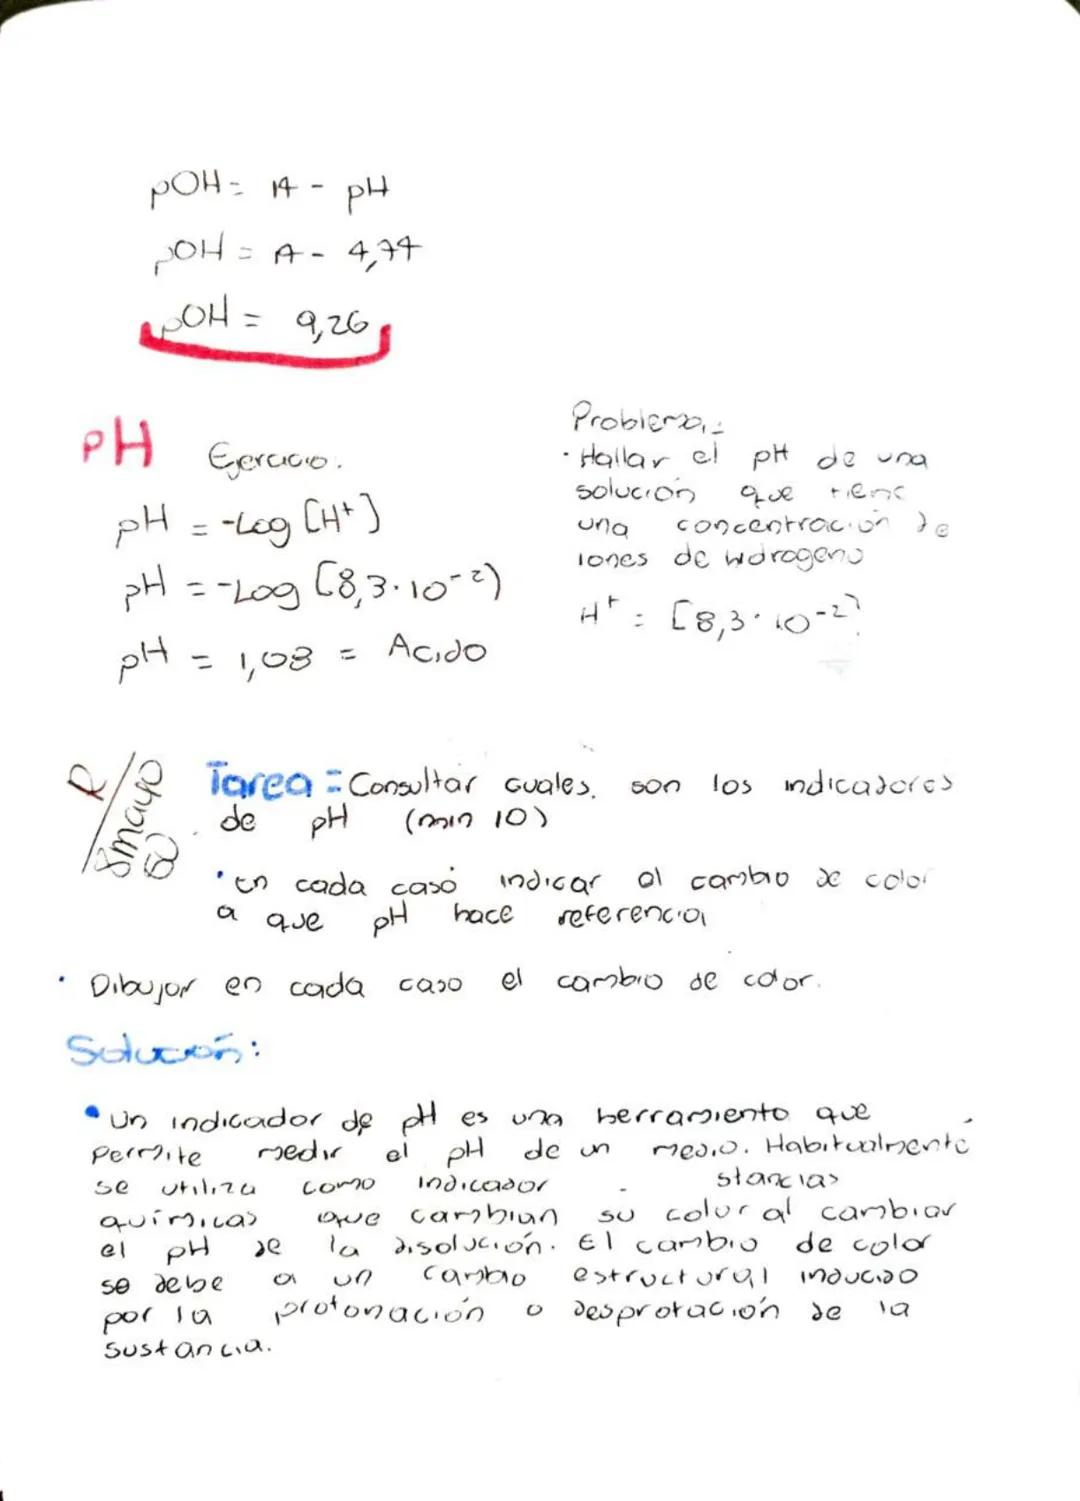 pOH = 14 - pH
pOH = 14 - 4,74
pOH = 9,26
pH Ejercicio.
pH = -Log [H+]
pH = -Log [8,3·10-2]
pH = 1,08 = Acido
Problema.-
· Hallar el pH de una
solución que tiene
una concentración de
iones de hidrogeno
H+ = [8,3·10-2]
R/
8mayo
Tarea = Consultar cuales son los indicadores
de pH (min 10)
· En cada caso indicar al cambio de color
a que pH hace referencia
· Dibujar en cada caso el cambio de color.
Solución:
· Un indicador de pH es una herramiento que
permite medir el pH de un medio. Habitualmente
se utiliza como indicador stancias
químicas que cambian su color al cambiar
el pH de la disolución. El cambio de color
se debe a un cambio estructural inducido
por la protonación o desprotación de la
sustancia.